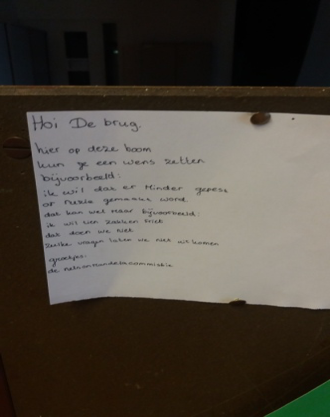 Hoi De brug.
hier op deze boom
kun je een wens zetten
bijvoorbeeld:
ik wil dat er minder gepest
of ruzie gemaakt word
dat kan wel maar bijvoorbeeld:
ik wil tien zakken
dat doen we niet
zulke vragen laten we niet uit komen
groetjes:
de